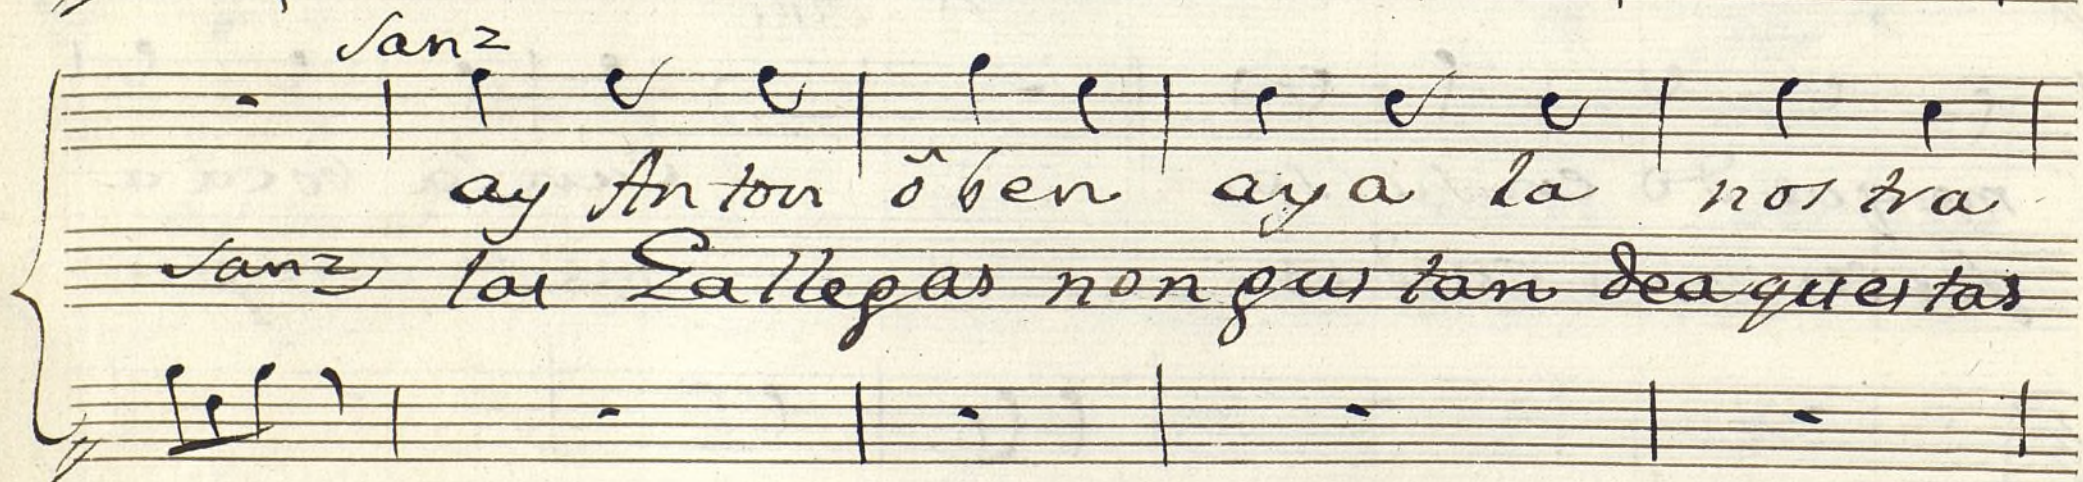 Sanz
ay Anton ô ben aya la nostra
Sanz las Gallegas non gustan de aquestas